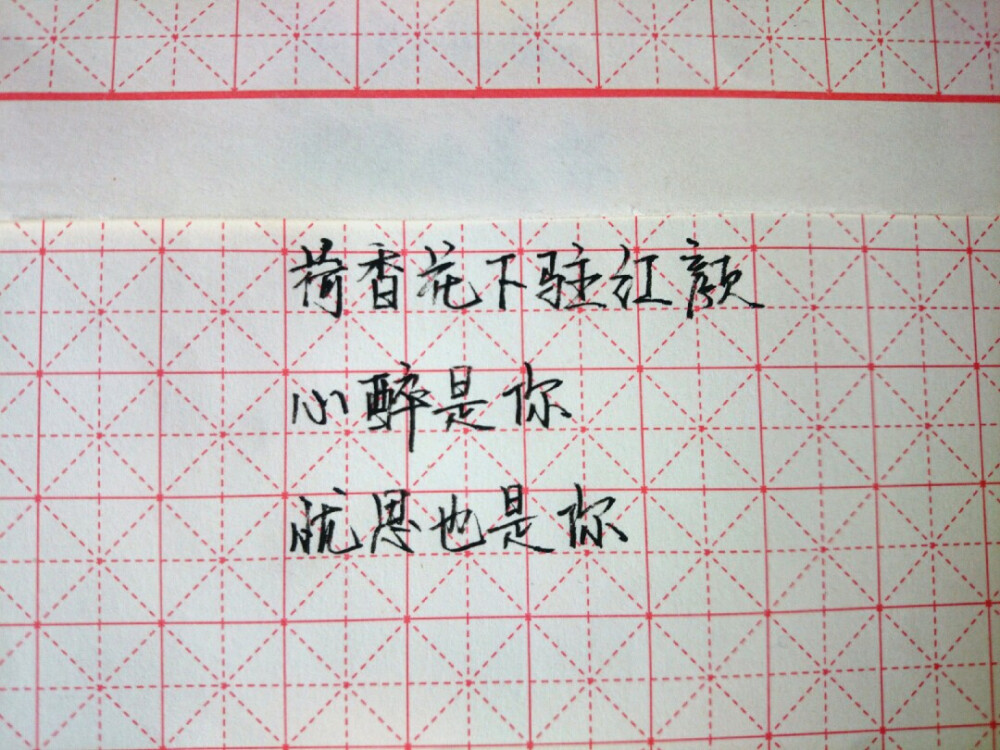 荷香花下驻红颜
心醉是你
忧思也是你